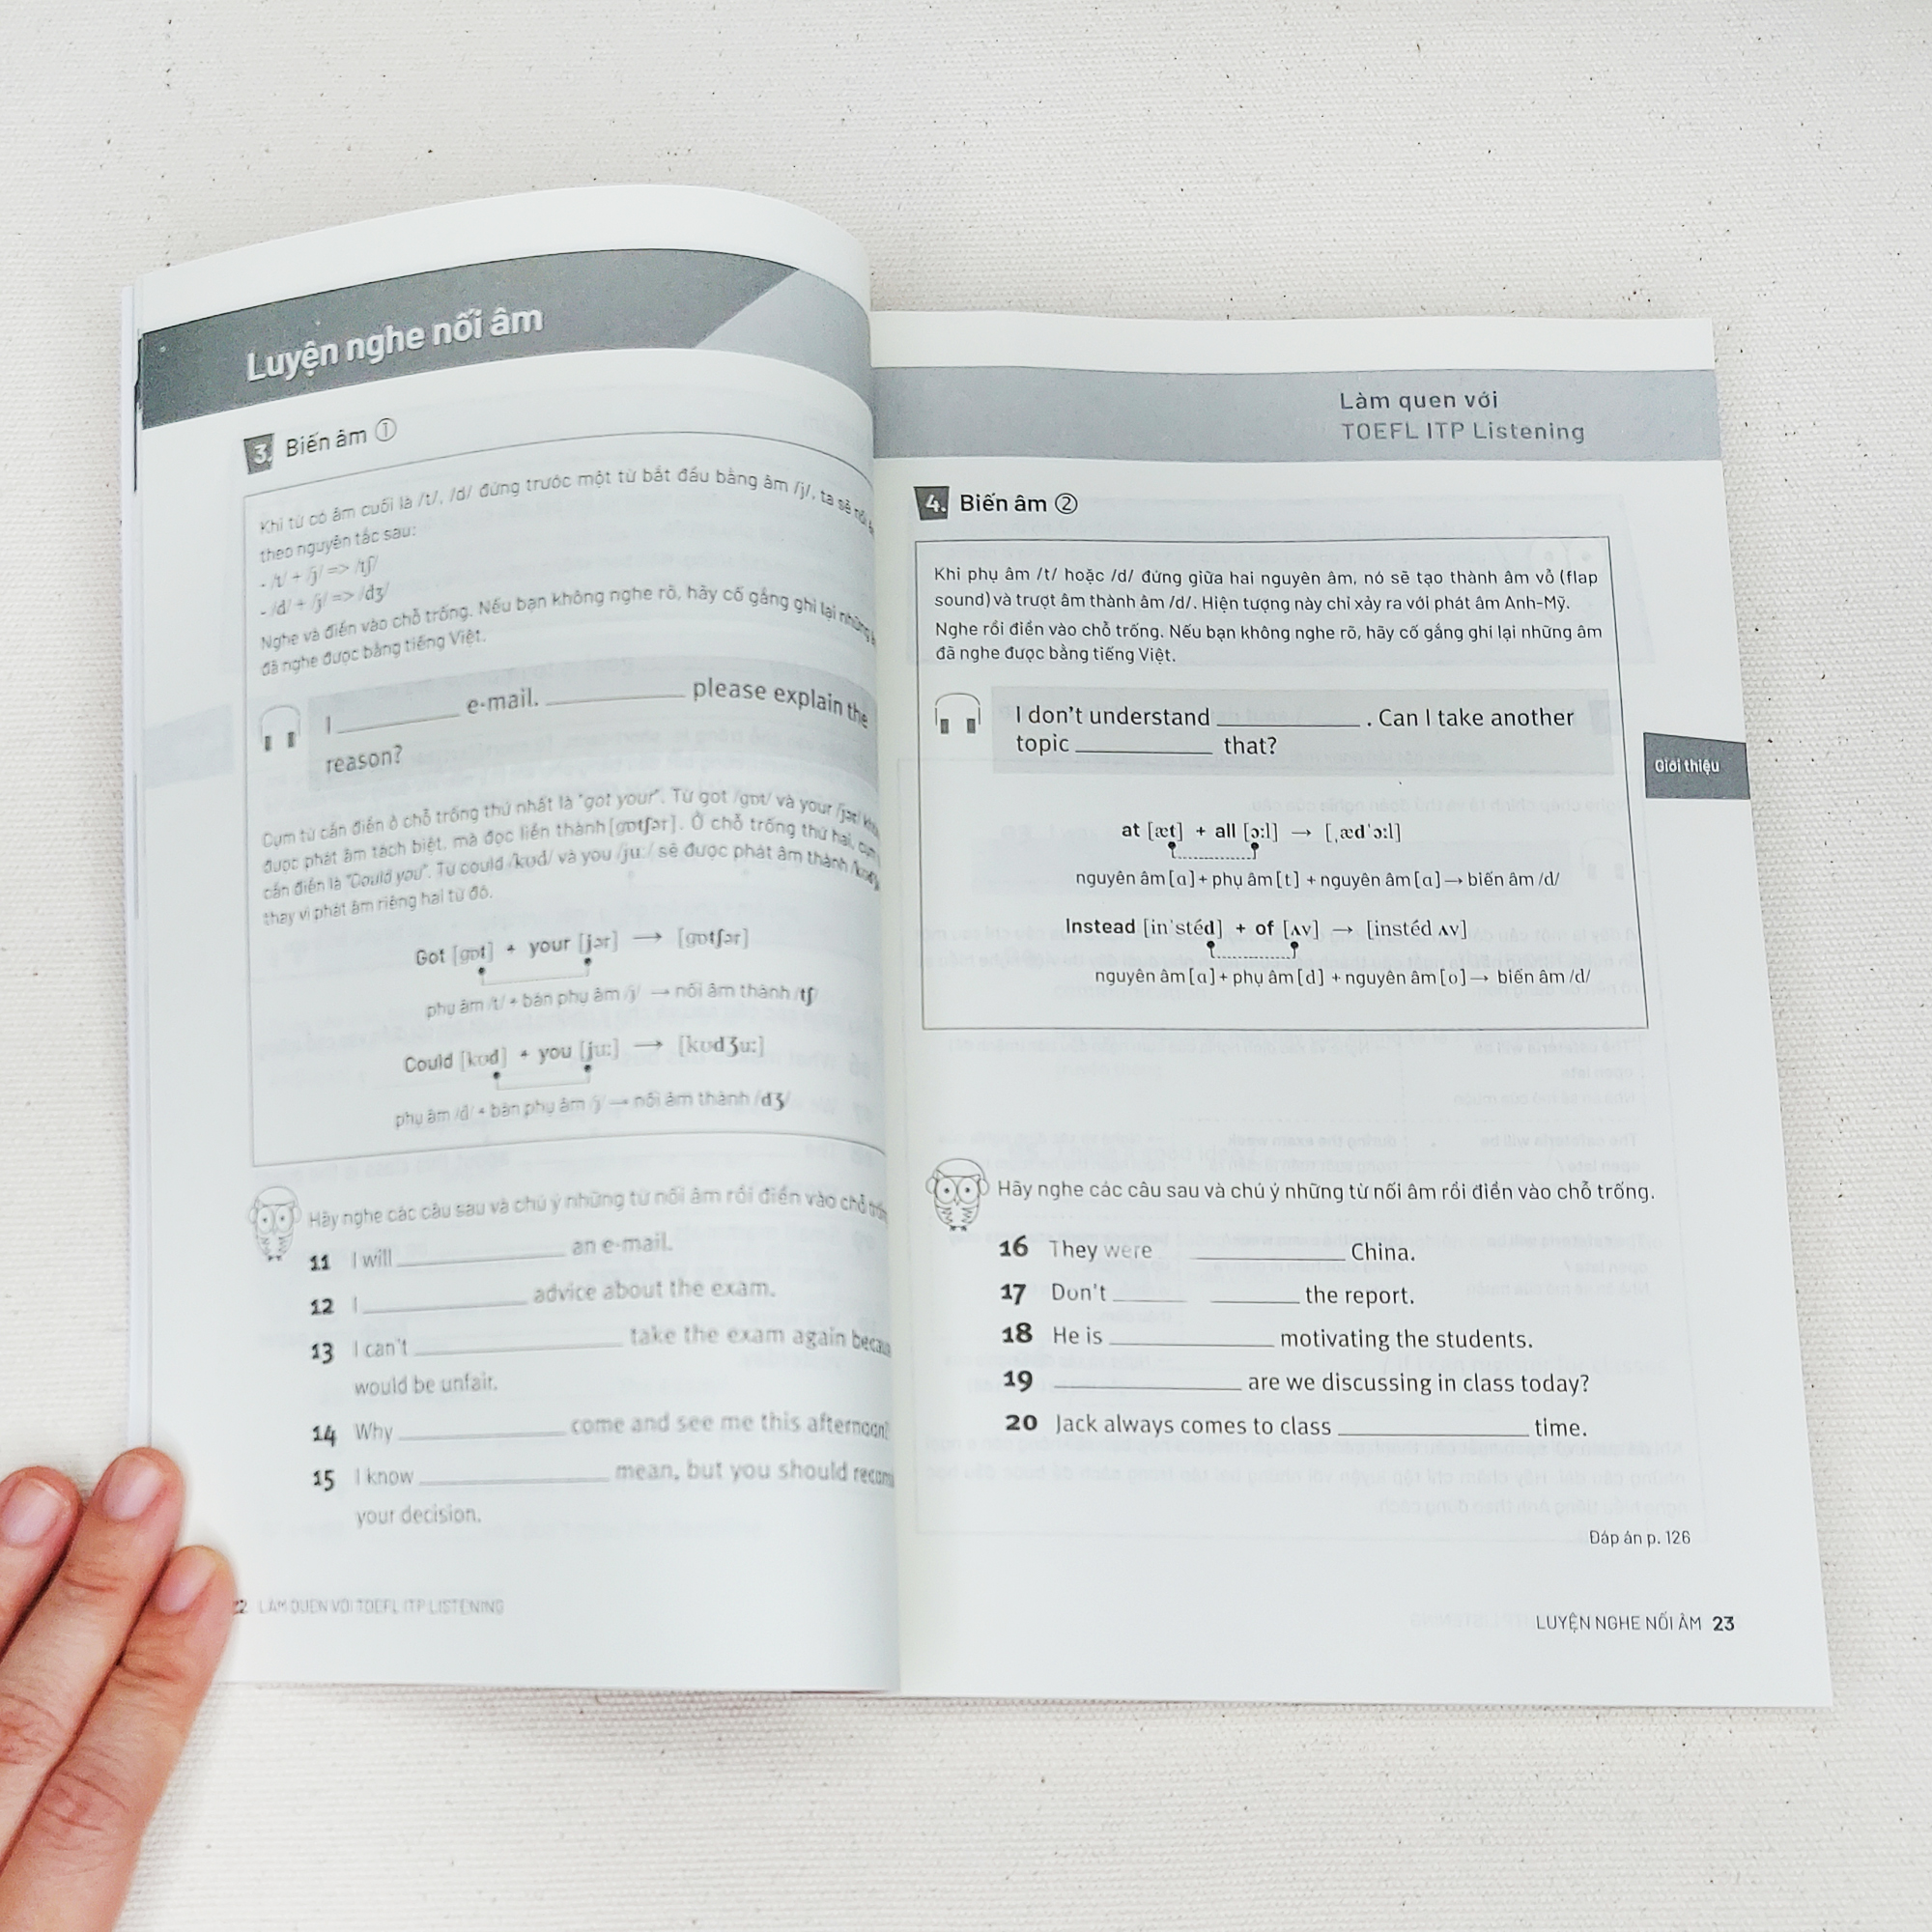 Luyện nghe nối âm
3. Biến âm ①
Khi từ có âm cuối là /t/, /d/ đứng trước một từ bắt đầu bằng âm /j/, ta sẽ nối
theo nguyên tắc sau:
- /t/ + /j/ => /tʃ/
- /d/ + /j/ => /dʒ/
Nghe và điền vào chỗ trống. Nếu bạn không nghe rõ, hãy cố gắng ghi lại những
đã nghe được bằng tiếng Việt.
I __________ e-mail. __________ please explain the
reason?
Cụm từ cần điền ở chỗ trống thứ nhất là "got your". Từ got /gɒt/ và your /jər/
được phát âm tách biệt, mà đọc liền thành [gɒtʃər]. Ở chỗ trống thứ hai, cụm
cần điền là "Could you". Từ could /kʊd/ và you /juː/ sẽ được phát âm thành
thay vì phát âm riêng hai từ đó.
Got [gɒt] + your [jər] → [gɒtʃər]
phụ âm /t/ + bán phụ âm /j/ → nối âm thành /tʃ/
Could [kʊd] + you [juː] → [kʊdʒuː]
phụ âm /d/ + bán phụ âm /j/ → nối âm thành /dʒ/
Hãy nghe các câu sau và chú ý những từ nối âm rồi điền vào chỗ
11 I will __________ an e-mail.
12 I __________ advice about the exam.
13 I can't __________ take the exam again
would be unfair.
14 Why __________ come and see me this afternoon?
15 I know __________ mean, but you should
your decision.
LÀM QUEN VỚI TOEFL ITP LISTENING
Làm quen với
TOEFL ITP Listening
4. Biến âm ②
Khi phụ âm /t/ hoặc /d/ đứng giữa hai nguyên âm, nó sẽ tạo thành âm vỗ (flap
sound) và trượt âm thành âm /d/. Hiện tượng này chỉ xảy ra với phát âm Anh-Mỹ.
Nghe rồi điền vào chỗ trống. Nếu bạn không nghe rõ, hãy cố gắng ghi lại những âm
đã nghe được bằng tiếng Việt.
I don't understand __________ . Can I take another
topic __________ that?
Giới thiệu
at [æt] + all [ɔ:l] → [ˌædˈɔ:l]
nguyên âm [ɑ] + phụ âm [t] + nguyên âm [ɑ] → biến âm /d/
Instead [inˈstéd] + of [ʌv] → [instéd ʌv]
nguyên âm [ɑ] + phụ âm [d] + nguyên âm [o] → biến âm /d/
Hãy nghe các câu sau và chú ý những từ nối âm rồi điền vào chỗ trống.
16 They were __________ China.
17 Don't _____ _____ the report.
18 He is __________ motivating the students.
19 __________ are we discussing in class today?
20 Jack always comes to class __________ time.
Đáp án p. 126
LUYỆN NGHE NỐI ÂM 23